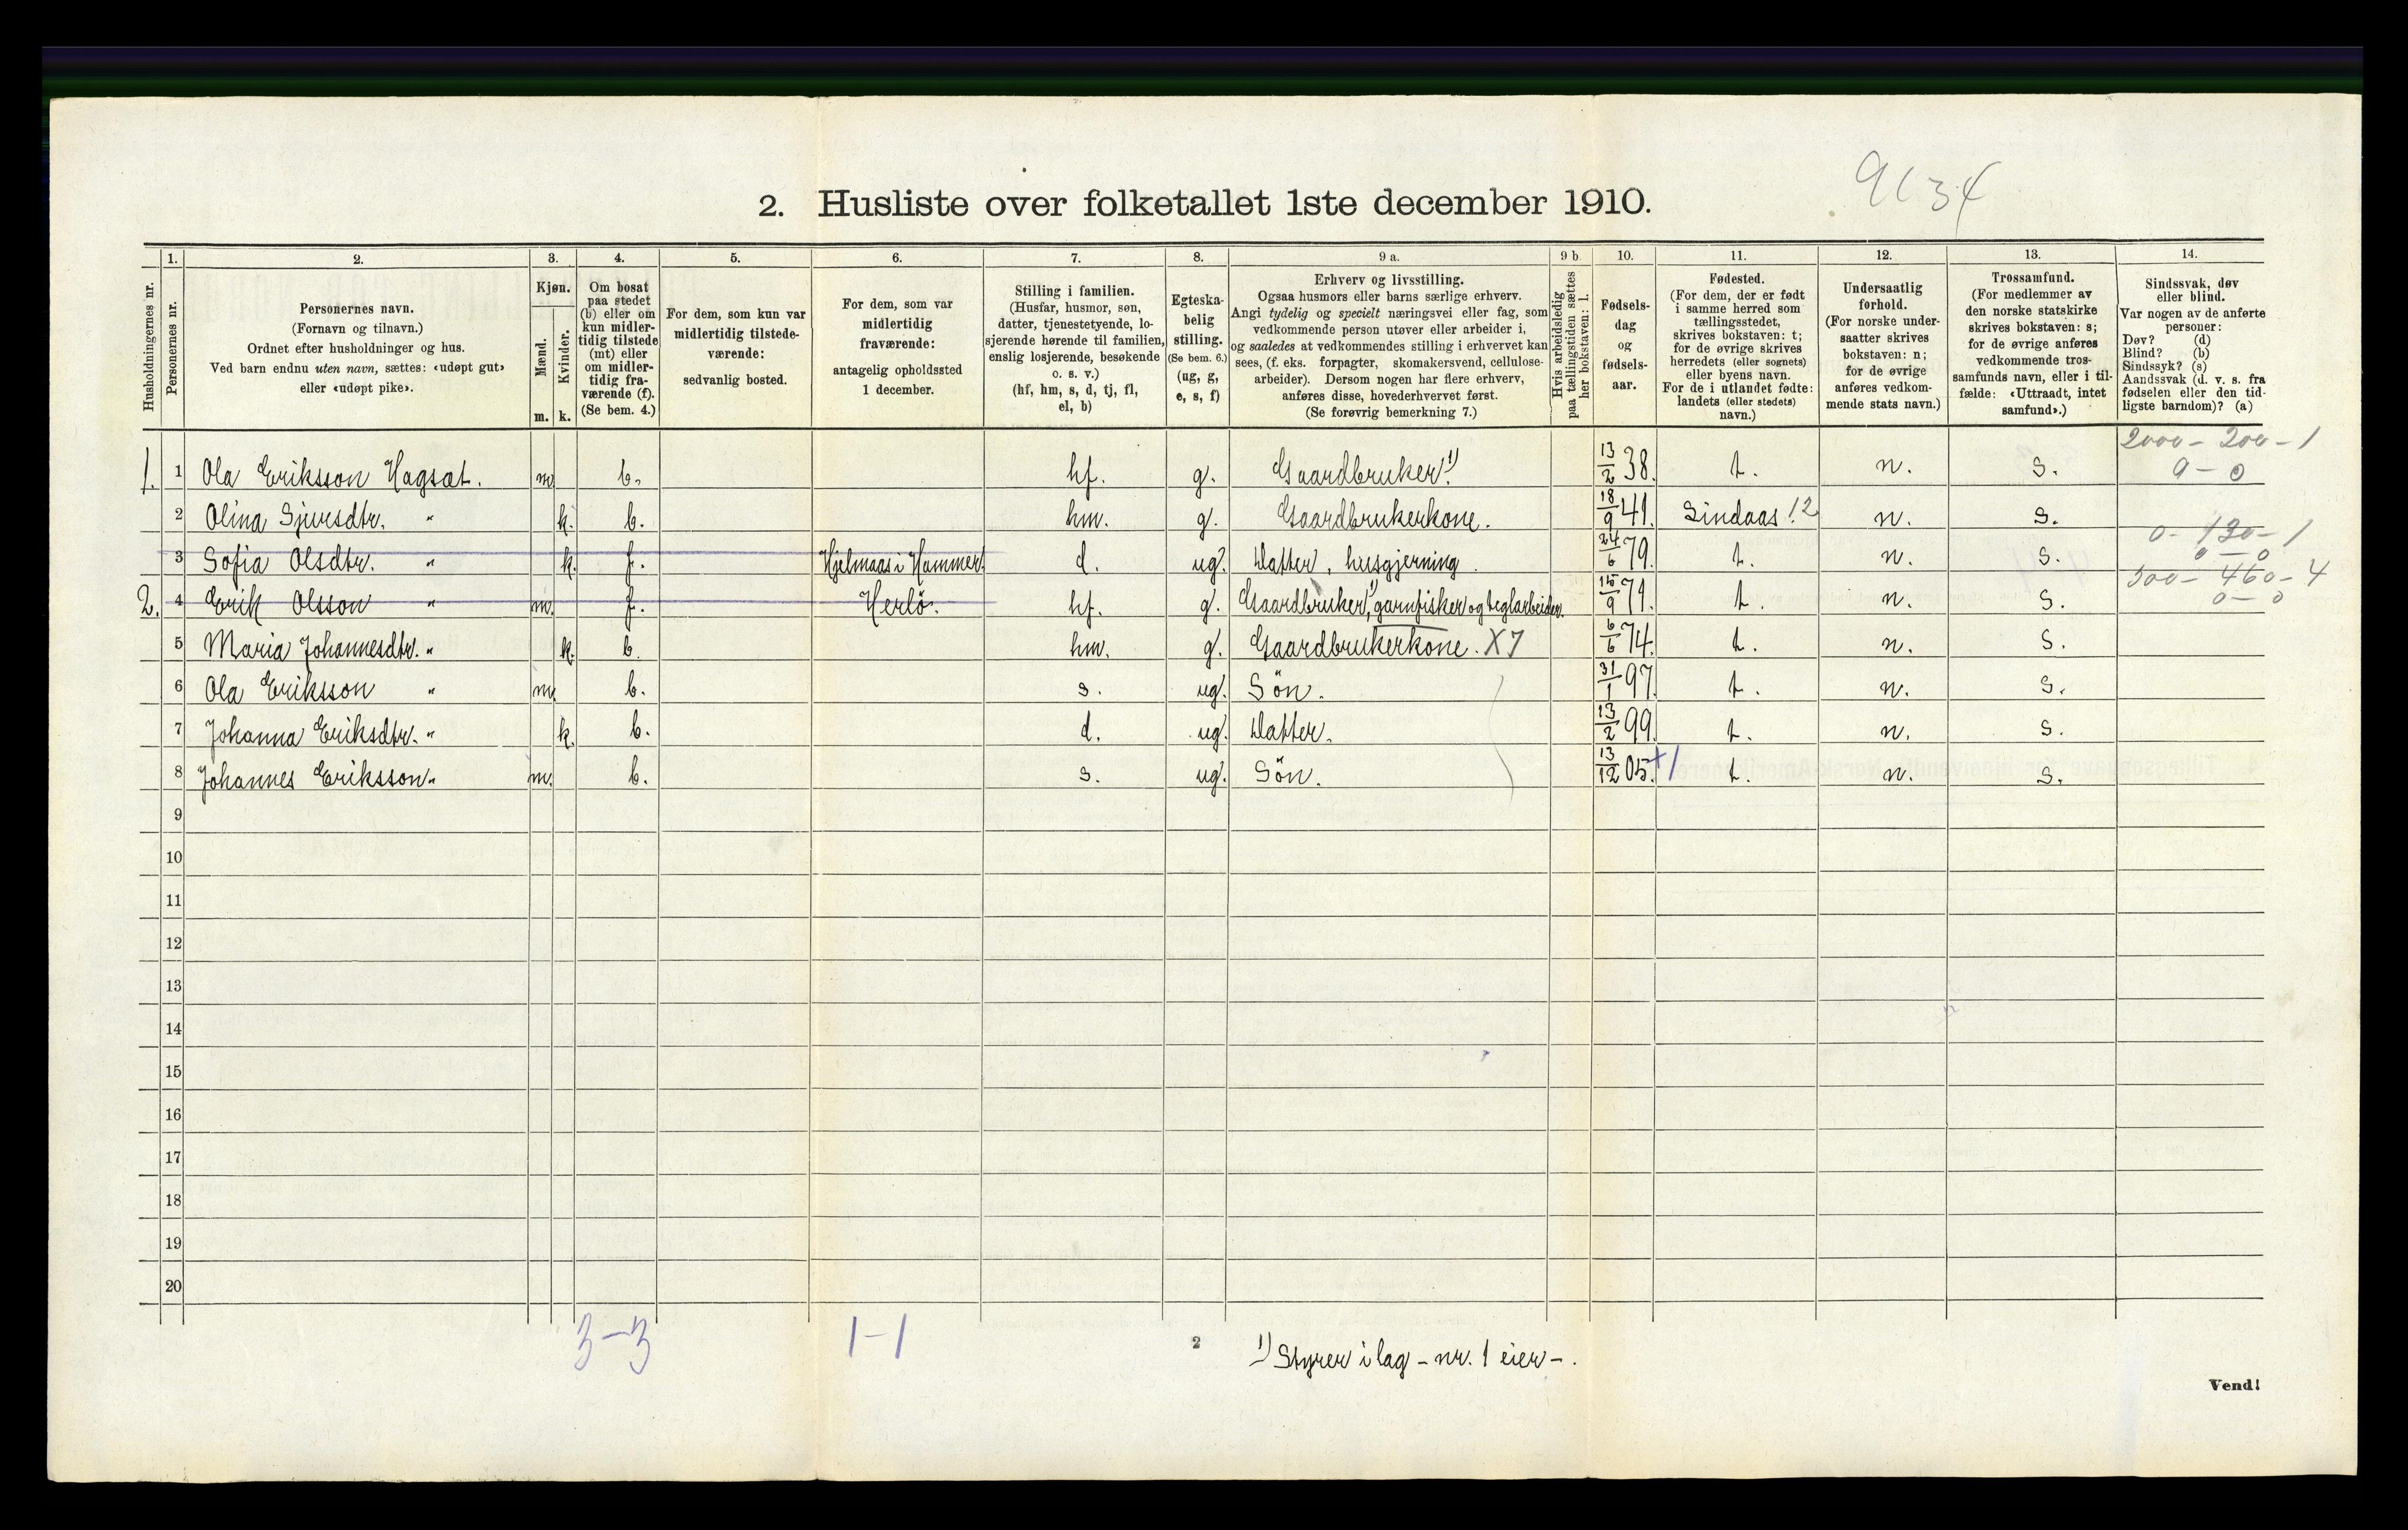 9634
2. Husliste over folketallet 1ste december 1910.
Husholdningernes nr.
1. Personernes nr.
2. Personernes navn. (Fornavn og tilnavn.) Ordnet efter husholdninger og hus. Ved barn endnu uten navn, sættes: «udøpt gut» eller «udøpt pike».
3. Kjøn. Mænd. m. Kvinder. k.
4. Om bosat paa stedet (b) eller om kun midlertidig tilstede (mt) eller om midlertidig fraværende (f). (Se bem. 4.)
5. For dem, som kun var midlertidig tilstedeværende: sedvanlig bosted.
6. For dem, som var midlertidig fraværende: antagelig opholdssted 1 december.
7. Stilling i familien. (Husfar, husmor, søn, datter, tjenestetyende, losjerende hørende til familien, enslig losjerende, besøkende o. s. v.) (hf, hm, s, d, tj, fl, el, b)
8. Egteskabelig stilling. (Se bem. 6.) (ug, g, e, s, f)
9 a. Erhverv og livsstilling. Ogsaa husmors eller barns særlige erhverv. Angi tydelig og specielt næringsvei eller fag, som vedkommende person utøver eller arbeider i, og saaledes at vedkommendes stilling i erhvervet kan sees, (f. eks. forpagter, skomakersvend, cellulosearbeider). Dersom nogen har flere erhverv, anføres disse, hovederhvervet først. (Se forøvrig bemerkning 7.)
9 b. Hvis arbeidsledig paa tællingstiden sættes her bokstaven: l.
10. Fødselsdag og fødselsaar.
11. Fødested. (For dem, der er født i samme herred som tællingsstedet, skrives bokstaven: t; for de øvrige skrives herredets (eller sognets) eller byens navn. For de i utlandet fødte: landets (eller stedets) navn.)
12. Undersaatlig forhold. (For norske undersaatter skrives bokstaven: n; for de øvrige anføres vedkommende stats navn.)
13. Trossamfund. (For medlemmer av den norske statskirke skrives bokstaven: s; for de øvrige anføres vedkommende trossamfunds navn, eller i tilfælde: «Uttraadt, intet samfund».)
14. Sindssvak, døv eller blind. Var nogen av de anførte personer: Døv? (d) Blind? (b) Sindssyk? (s) Aandssvak (d. v. s. fra fødselen eller den tidligste barndom)? (a)
1. 1 Ola Eriksson Hagsæt. m. b. hf. g. Gaardbruker¹⁾. 13/2 38. t. n. s. 2000 - 200 - 1 0 - 0
2 Olina Sjursdtr. " k. b. hm. g. Gaardbrukerkone. 18/9 41. Lindaas 12 n. s.
3 Sofia Olsdtr. " k. f. Hjelmaas i Hammer. d. ug. Datter, husgjerning. 24/6 79. t. n. s. 0 - 130 - 1 0 - 0
2. 4 Erik Olsson " m. f. Herlö. hf. g. Gaardbruker¹⁾, garnfisker og teglarbeider. 15/9 71. t. n. s. 300 - 460 - 4 0 - 0
5 Maria Johannesdtr. " k. b. hm. g. Gaardbrukerkone. X7 6/6 74. t. n. s.
6 Ola Eriksson " m. b. s. ug. Sön. 31/1 97. t. n. s.
7 Johanna Eriksdtr. " k. b. d. ug. Datter. 13/2 99. t. n. s.
8 Johannes Eriksson " m. b. s. ug. Sön. 13/12 05. +1 t. n. s.
9
10
11
12
13
14
15
16
17
18
19
20
3-3 1-1 2 ¹⁾ Styrer i lag - nr. 1 eier -.
Vend!